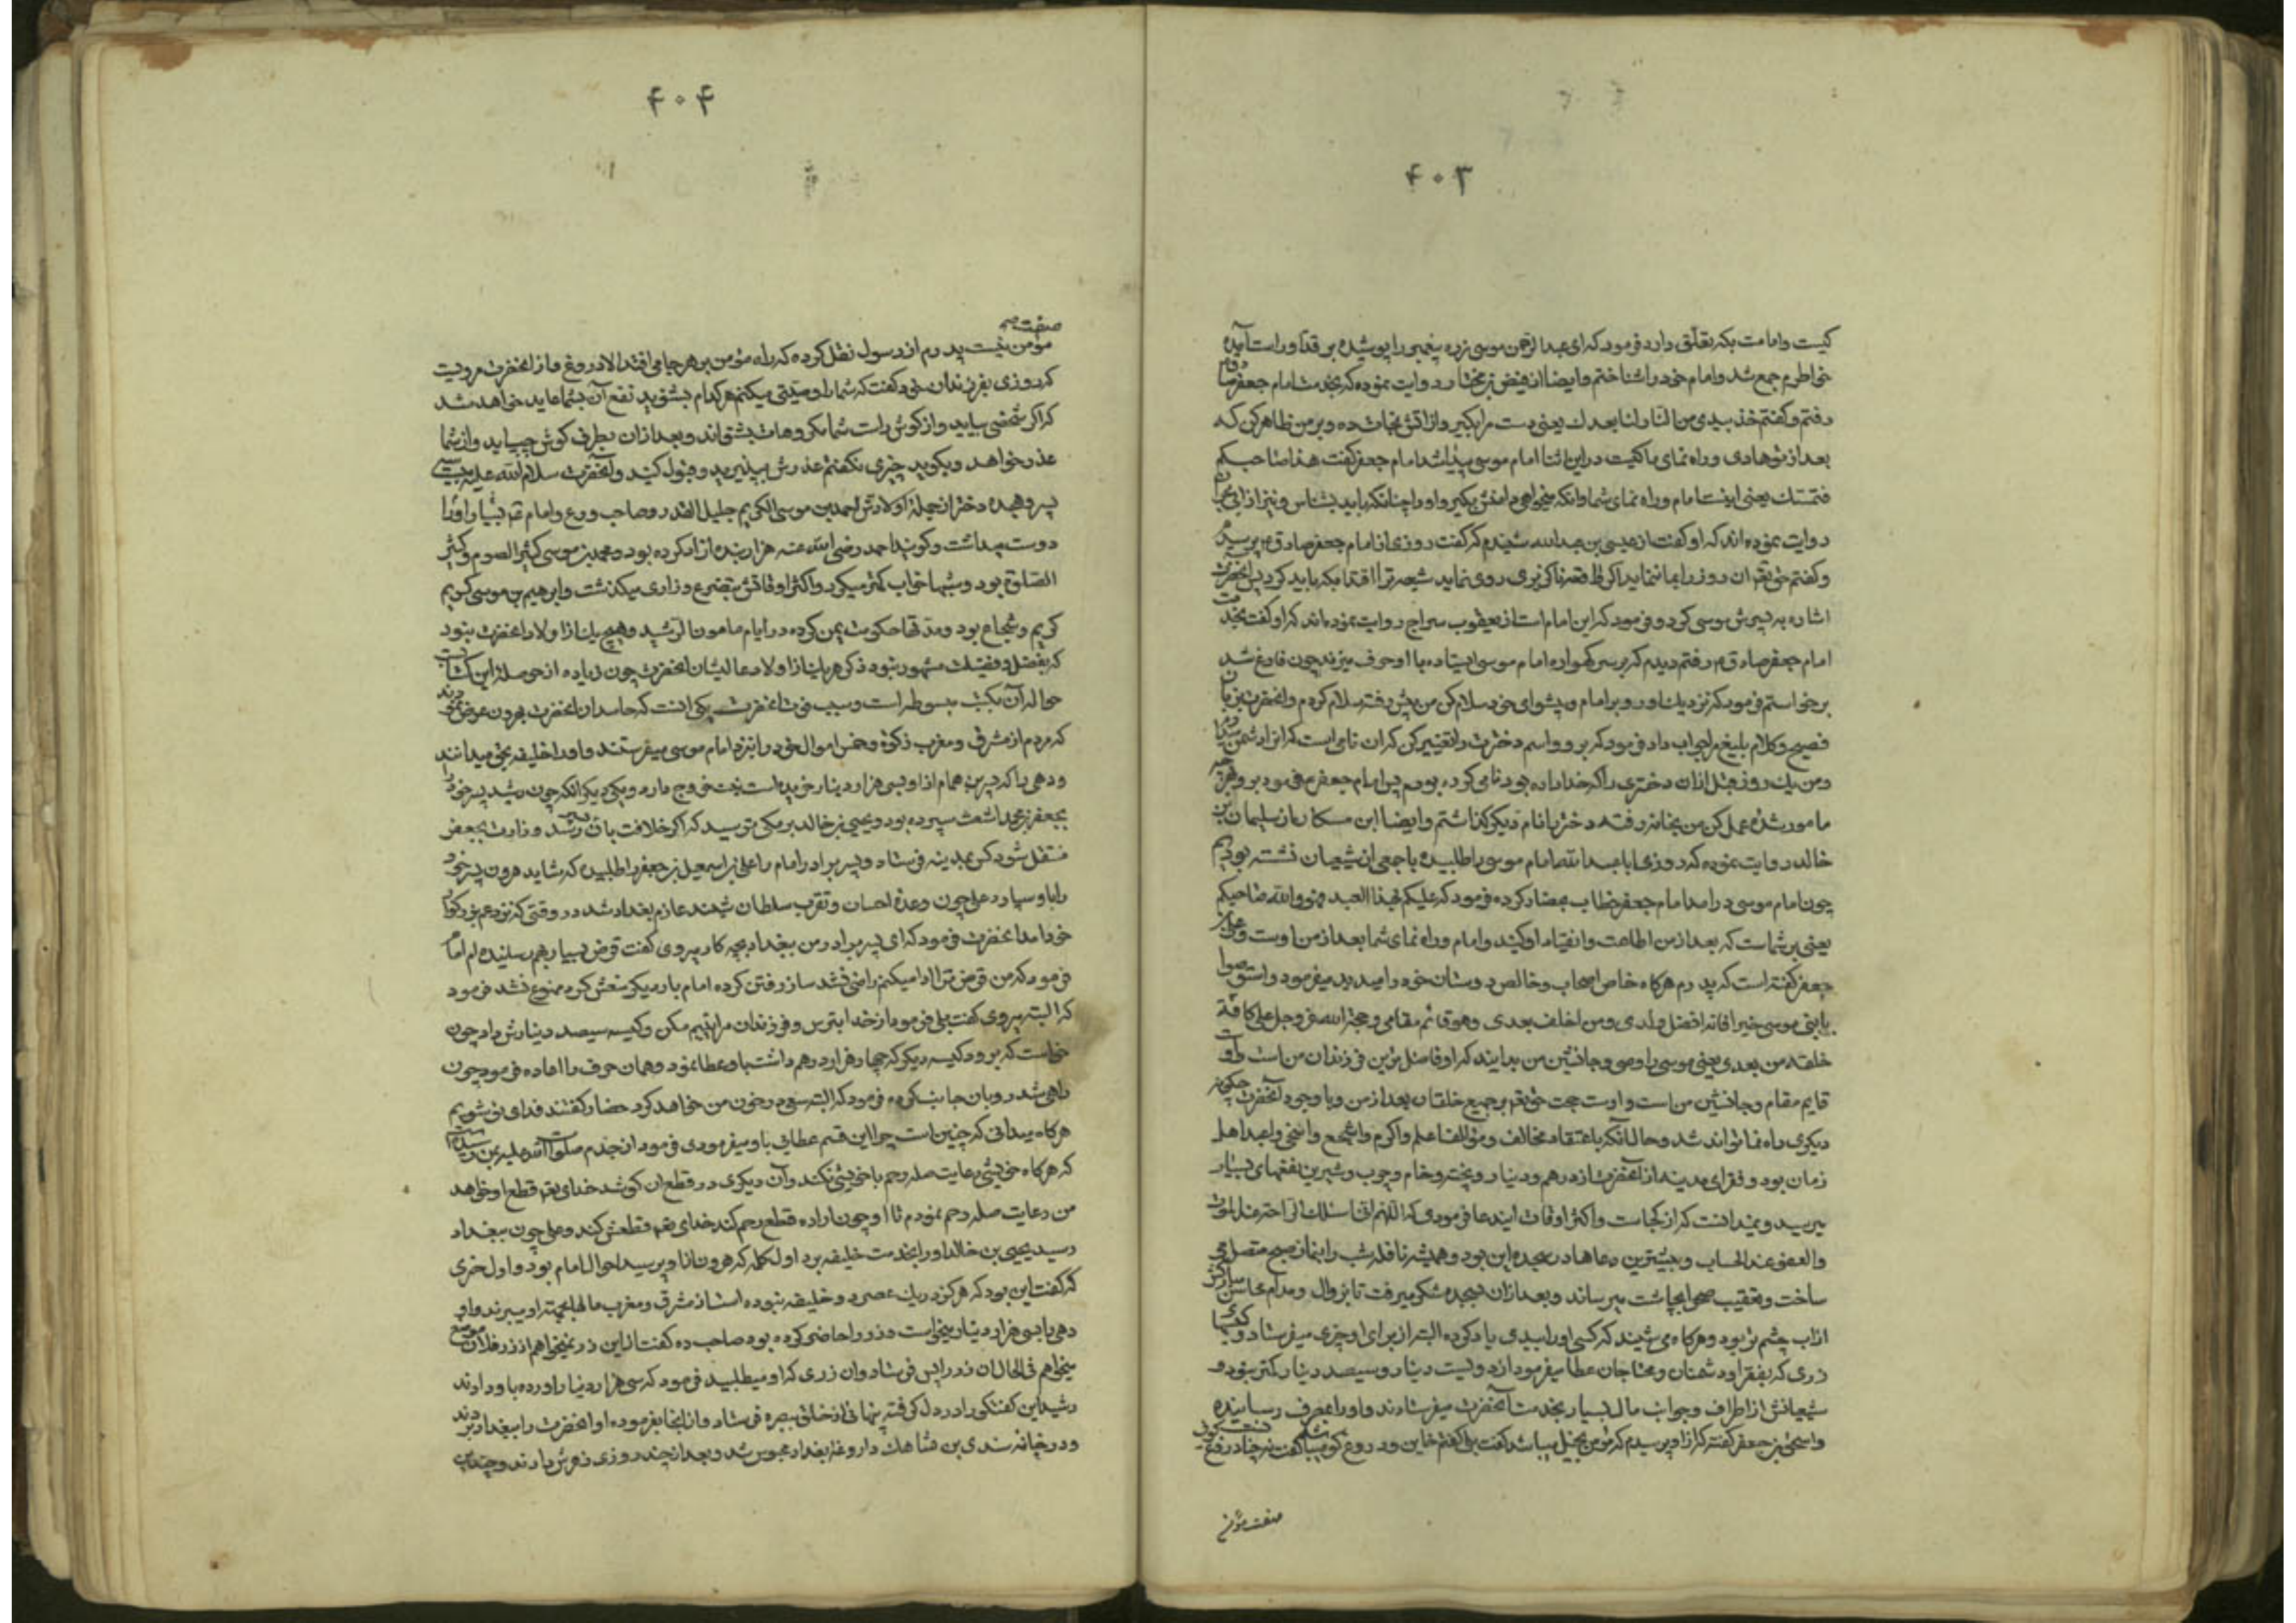 ۴۰۳
کیست وامامت بکه تعلّق دارد فرمود که ای عبدالرحمن موسی زره پیغمبر را پوشیده بر قد او راست آمده
خاطرم جمع شد وامام خود را شناختم وایضا از فیض بن مختار روایت نموده که بخدمت امام جعفر صادق
رفتم و گفتم خذ بیدی من النار لنا بعدك یعنی دست مرا بگیر واز آتش نجات ده و بر من ظاهر کن که
بعد از تو هادی وراه نمای ما کیست در این اثنا امام موسی پیدا شد امام جعفر گفت هذا صاحبکم
فتمسّك یعنی اینست امام وراه نمای شما وانکه میخواهی دامنش بگیر واو را چنانکه باید بشناس و نیز از ابن نجران
روایت نموده اند که او گفت از عیسی بن عبدالله شنیدم که گفت روزی از امام جعفر صادق ع پرسیدم
و گفتم حق تعم آن روز را بما ننماید اگر واقعه ناگزیری روی نماید شیعه ترا اقتدا بکه باید کرد پس آنحضرت
اشاره به پسرش موسی کرد و فرمود که این امام است از یعقوب سراج روایت نموده اند که او گفت بخدمت
امام جعفر صادق م رفتم دیدم که بر سر گهواره امام موسی ایستاده با او حرف میزند چون فارغ شد
برخواستم فرمود که نزدیك او رو بر امام و پیشوای خود سلام کن من پیش رفته سلام کردم وانحضرت بزبان
فصیح و کلام بلیغ مرا جواب داد فرمود که برو واسم دخترت را تغییر کن که ان نامی است که انرا دشمن میدارم
ومن یك روز قبل از ان دختری را که خدا داده بود نامی کرده بودم پس امام جعفر م فرمود برو وبهرچه
مامور شدهٔ عمل کن من بخانه رفته دختر را نام دیگر گذاشتم وایضا ابن مسکان از سلیمان بن
خالد روایت نموده که روزی ابا عبدالله امام موسی را طلبیده با جمعی از شیعیان نشسته بودیم
چون امام موسی درامد امام جعفر خطاب بحضار کرده فرمود که علیکم بهذا بعدی فهو والله صاحبکم
یعنی بر شماست که بعد از من اطاعت وانقیاد او کنید وامام وراه نمای شما بعد از من اوست و علی بن
جعفر گفته است که پدرم هرگاه خاص اصحاب و خالص دوستان خود را میدید میفرمود واستوصوا
بابنی موسی خیرا فانه افضل ولدی ومن اخلف بعدی وهو قائم مقامی وحجة الله عزوجل علی کافة
خلقه من بعدی یعنی موسی را وصی وجانشین من بدانید که او فاضل ترین فرزندان من است واو
قایم مقام وجانشین من است واوست حجت حق تعم بر جمیع خلقان بعد از من وبا وجود آنحضرت چگونه
دیگری راه نما تواند شد وحال آنکه باعتقاد مخالف ومؤالف اعلم واکرم واشجع واسخی واعبد اهل
زمان بود وفقرای مدینه از آنحضرت از درهم ودینار وپخته وخام وچوب وشیرین نفقهای بسیار
میرسید ونمیدانست که از کجاست واکثر اوقات این دعا فرمودی که اللّهم انی اسئلك الرّاحة عند الموت
والعفو عند الحساب وبیشترین دعاها در سجده این بود وهمیشه نافله شب را بنماز صبح متصل می
ساخت وتعقیب صبح را بچاشت میرساند وبعد از ان بسجده شکر میرفت تا بزوال ومدام محاسن مبارکش
از اب چشم تر بود وهرگاه می شنید که کسی او را ببدی یاد کرده البته از برای او چیزی میفرستاد وکیسهای
زری که بفقرا ودشمنان ومحتاجان عطا میفرمود از دویست دینار وسیصد دینار کمتر نبود و
شیعیانش از اطراف وجوانب مال بسیار بخدمت آنحضرت میفرستادند واو را بمصرف رسانیده
واسحق بن جعفر گفته که از او پرسیدم که مؤمن بخیل میباشد گفت بلی گفتم خاین ودروغ گوی میباشد گفت نه
صفت مؤمن
۴۰۴
صفت
مؤمن نیست پدرم از رسول نقل کرده که راه مؤمن بر هر جا می افتد الا دروغ واز انحضرت مرویست
که روزی بفرزندان خود گفت که شما را وصیّتی میکنم هر کدام بشنوید نفع آن بشما عاید خواهد شد
که اگر شخصی بیاید واز گوش راست شما مکروهات بشنواند وبعد از ان بطرف گوش چپ آید واز شما
عذر خواهد وبگوید چیزی نگفتم عذرش بپذیرید وقبول کنید وآنحضرت سلام الله علیه بیست
پسر وهیجده دختر از جمله اولادش احمد بن موسی الکریم جلیل القدر وصاحب ورع وامام ع بسیار او را
دوست میداشت وگویند احمد رضی الله عنه هزار بنده ازاد کرده بود ومحمد بن موسی کثیر الصوم وکثیر
الصّلوة بود وشبها خواب کمتر میکرد واکثر اوقاتش بتضرع وزاری میگذشت وابرهیم بن موسی کریم
کریم وشجاع بود ومدتها حکومت یمن کرده در ایام مامون الرّشید وهیچ یك از اولاد انحضرت نبود
که بفضل وفضیلت مشهور نبود ذکر هر یك از اولاد عالیشان انحضرت چون زیاده از حوصله این کتاب
حواله آن بکتب مبسوطه است وسبب فوت انحضرت یکی انست که حاسدان انحضرت بهرون عرض نمودند
که مردم از مشرق ومغرب زکوة وخمس اموال خود را نزد امام موسی میفرستند واو را خلیفه بحق میدانند
ودهی را که بسی هزار دینار خریده است نیت خروج دارد ویکی دیگر آنکه چون رشید پسر خود را
بجعفر بن محمد اشعث سپرده بود ویحیی بن خالد برمکی ترسید که اگر خلافت بان پسر رسد وزارت بجعفر
منتقل شود کس بمدینه فرستاد وپسر برادر امام را علی بن اسمعیل بن جعفر را طلبید که شاید هرون پسر خود
را باو سپارد علی چون وعدهٔ احسان وتقرب سلطان شنید عازم بغداد شد در وقتی که نزد عم بزرگوار
خود آمد انحضرت فرمود که ای پسر برادر من ببغداد بچه کار میروی گفت قرض بسیار بهم رسانیده ام امام
فرمود که من قرض ترا ادا میکنم راضی نشد ساز رفتن کرده امام بار دیگر منعش کرد ممنوع نشد فرمود
که البته میروی گفت بلی فرمود از خدا بترس وفرزندان مرا یتیم مکن وکیسه سیصد دینارش داد چون
خواست که برود کیسه دیگر که چهار هزار درهم داشت باو عطا نمود وهمان حرف را اعاده فرمود چون
راهی شد رو بان جانب کرده فرمود که البته سعی در خون من خواهد کرد حضار گفتند فدای تو شویم
هرگاه میدانی که چنین است چرا این قسم عطائی باو میفرمودی فرمود از جدم صلوات الله علیه بمن رسیده است
که هرگاه خویشی رعایت صله رحم با خویشی نکند وآن دیگری در قطع ان کوشد خدای تعم قطع او خواهد
من رعایت صله رحم نمودم تا او چون اراده قطع رحم کند خدای تعم قطعش کند وعلی چون ببغداد
رسید یحیی بن خالد او را بخدمت خلیفه برد اول کلمه که هرون از او پرسید احوال امام بود واول حرفی
که گفت این بود که هرگز در یك عصر دو خلیفه نبوده است از مشرق ومغرب مالها بجهة او میبرند واو
دهی را بسی هزار دینار میخواست وزر را حاضر کرده بود صاحب ده گفت از این زر نمیخواهم از زر فلان موضع
میخواهم فی الحال ان زر را پس فرستاد وان زری که او میطلبید فرمود که سی هزار دینار آورده باو دادند
رشید این گفتگو را در دل گرفته پنهانی از خلق ببصره فرستاد واز انجا بفرموده او انحضرت را ببغداد بردند
ودر خانه سندی بن شاهك داروغهٔ بغداد محبوس شد وبعد از چند روزی زهرش دادند